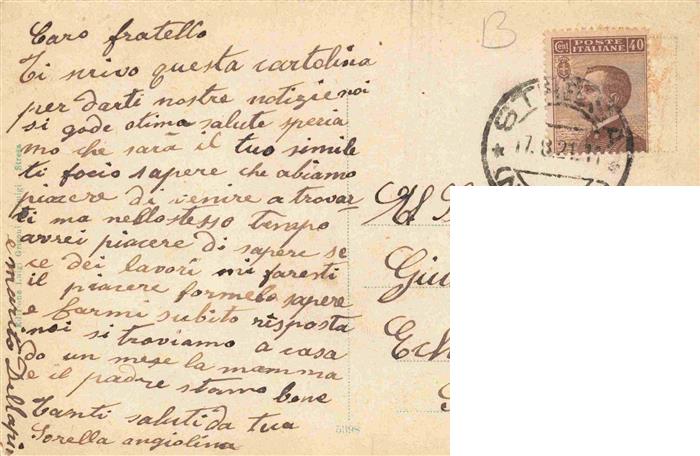 Caro fratello
Ti srivo questa cartolina
per darti nostre notizie noi
si gode otima salute speria
mo che sarà il tuo simile
ti focio sapere che abiamo
piacere di venire a trovar
ti ma nellostesso tempo
avrei piacere di sapere se
ce dei lavori mi faresti
il piacere formelo sapere
e farmi subito risposta
noi si troviamo a casa
do un mese la mamma
e il padre stamo bene
Tanti saluti da tua
Sorella angiolina
e marito
B
Cent POSTE 40
ITALIANE
STRESA
17.8.21
Giu
5398
Stresa